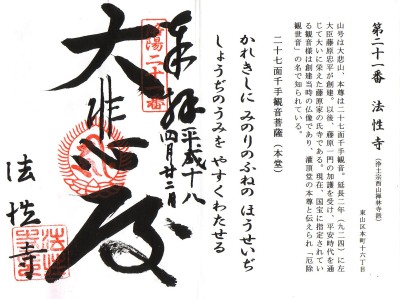 第二十一番 法性寺 (浄土宗西山禅林寺派)
東山区本町十六丁目
山号は大悲山、本尊は二十七面千手観音。延長二年(九二四)に左
大臣藤原忠平が創建。以後、藤原一門の加護を受け、平安時代を通
じて大いに栄えた藤原家の氏寺である。現在、国宝に指定されてい
る観音様は創建当時の仏像であり、灌頂堂の本尊と伝えられ「厄除
観世音」の名で知られている。
二十七面千手観音菩薩(本堂)
かれきしに みのりのふねの ほうせいぢ
しょうぢのうみを やすくわたせる
奉拝 平成十八
四月廿二日
洛陽二十一番
大悲殿
法性寺